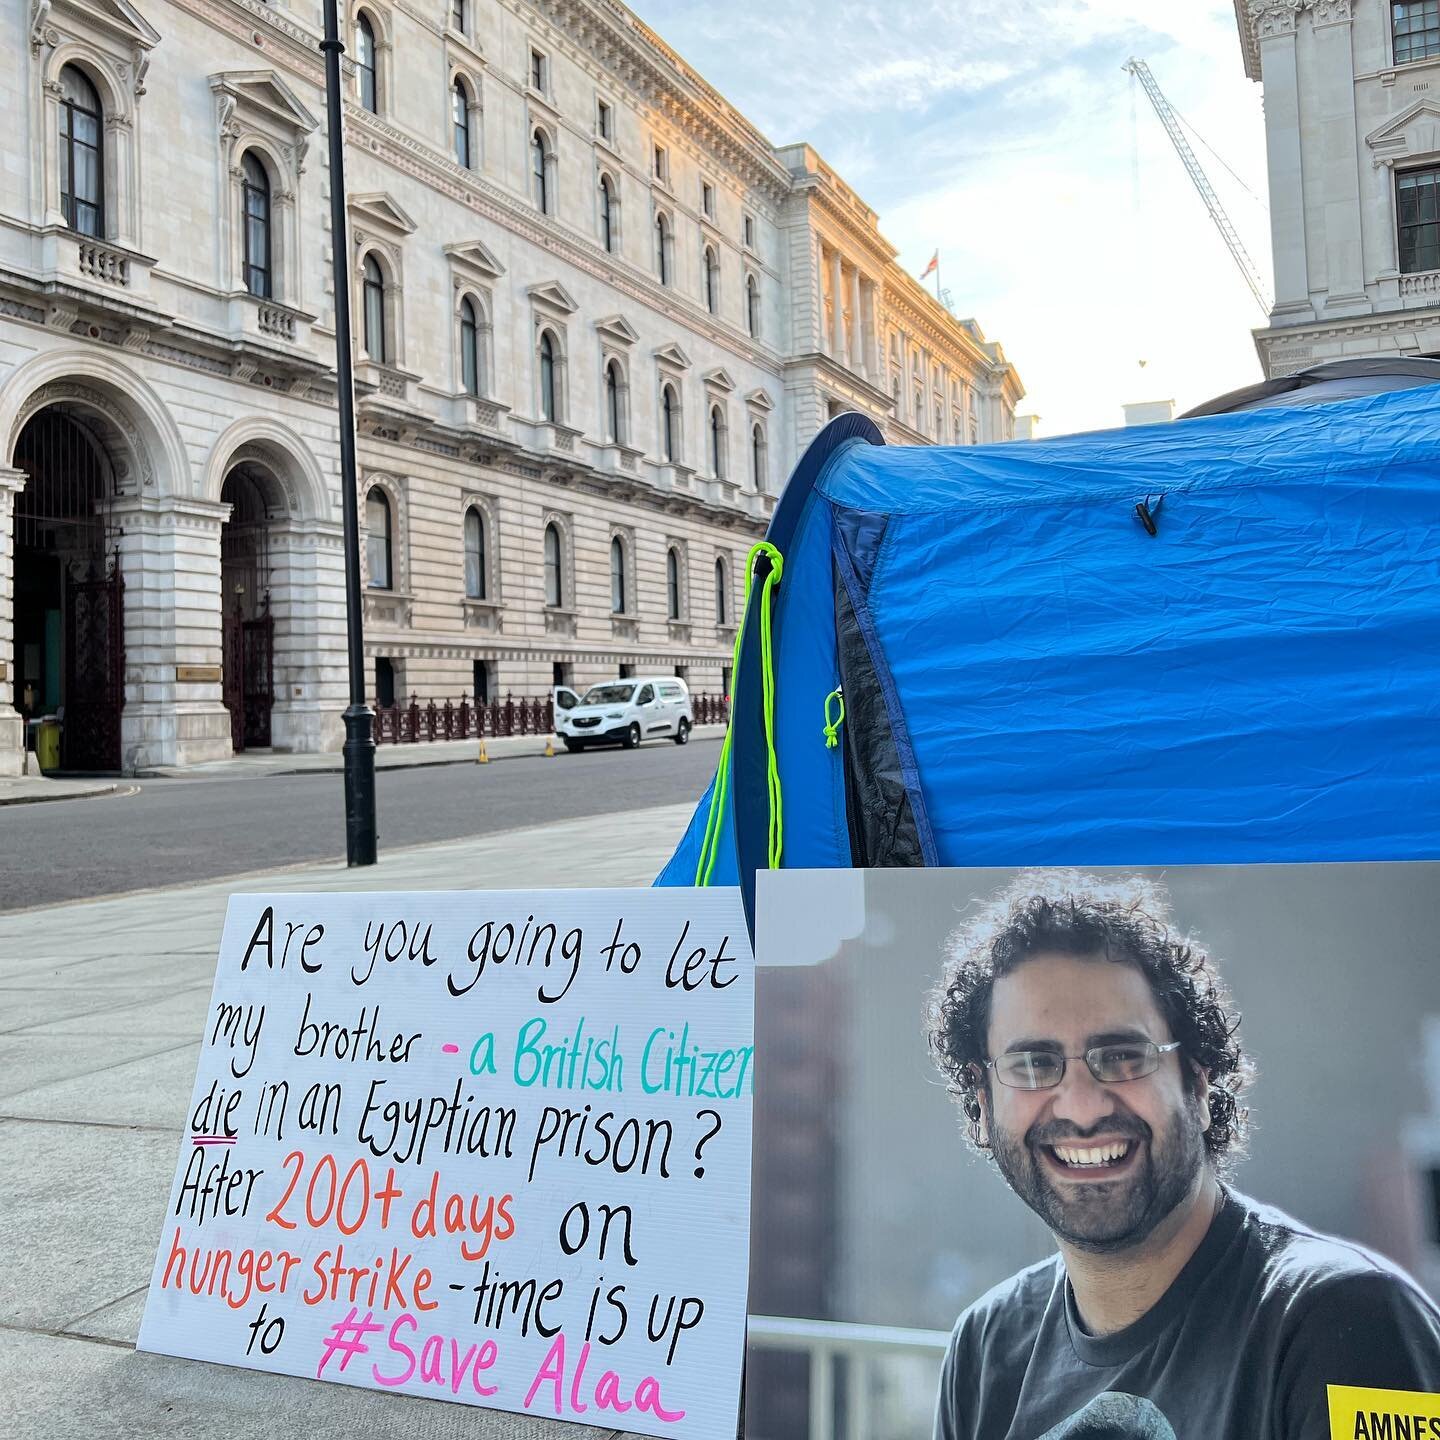 Are you going to let
my brother - a British Citizen
die in an Egyptian prison?
After 200+ days on
hunger strike - time is up
to #Save Alaa
AMNES